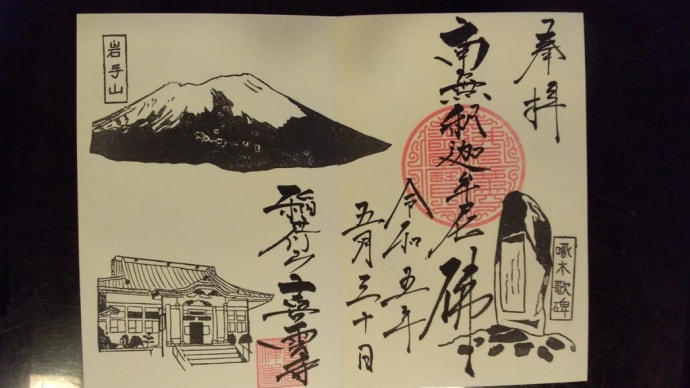 奉拝
南無釈迦牟尼佛
令和五年
五月三十日
稲荷山 喜雲寺
啄木歌碑
岩手山